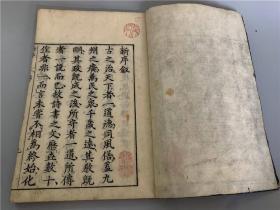 新序叙
古之治天下者一道德同風俗盖九
州之廣萬民之衆千歲之遠其教既
明其習既成之後所守者一道所傳
者一說而已故詩書之文歷世數十
作者非一而言未嘗不相為終始化